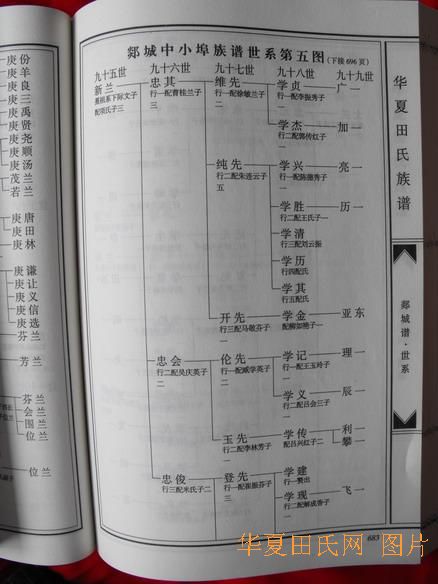 庚份
庚羊
庚良
庚三
庚禹
庚贤
庚尧
庚顺
庚汤
茂兰
若兰
庚唐
庚田
庚林
庚谦
庚让
庚义
庚信
庚选
芬兰
芳兰
芬兰
会兰
图兰
位兰
位兰
郯城中小埠族谱世系第五图(下接696页)
九十五世 九十六世 九十七世 九十八世 九十九世
新兰 忠其 维先 学贞 广一
配项氏子三 行一配曹桂兰子三 行一配徐敏兰子二 行一配李振秀子一
学杰 加一
行二配郭传红子一
纯先 学兴 亮一
行二配朱连云子五 行一配陈德秀子一
学胜 历一
行二配王氏子一
学清
行三配刘云振
学历
行四配氏
学其
行五配氏
开先 学金 亚东
行三配马敬芬子一 配柳如艳子一
忠会 伦先 学记 理一
行二配吴庆英子二 行一配臧学英子二 行一配王玉玲子一
学义 辰一
行二配吕会三子一
玉先 学传 利一
攀一
行二配李林芳子一 配吕兴红子二
忠俊 登先 学建
行三配米氏子二 行一配崔振芬子三 行一赘出
学现 飞一
行二配解成香子一
683
华夏田氏族谱
郯城谱·世系
华夏田氏网 图片